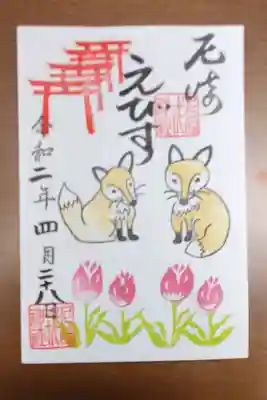 尼崎
えびす
令和二年四月二十八日